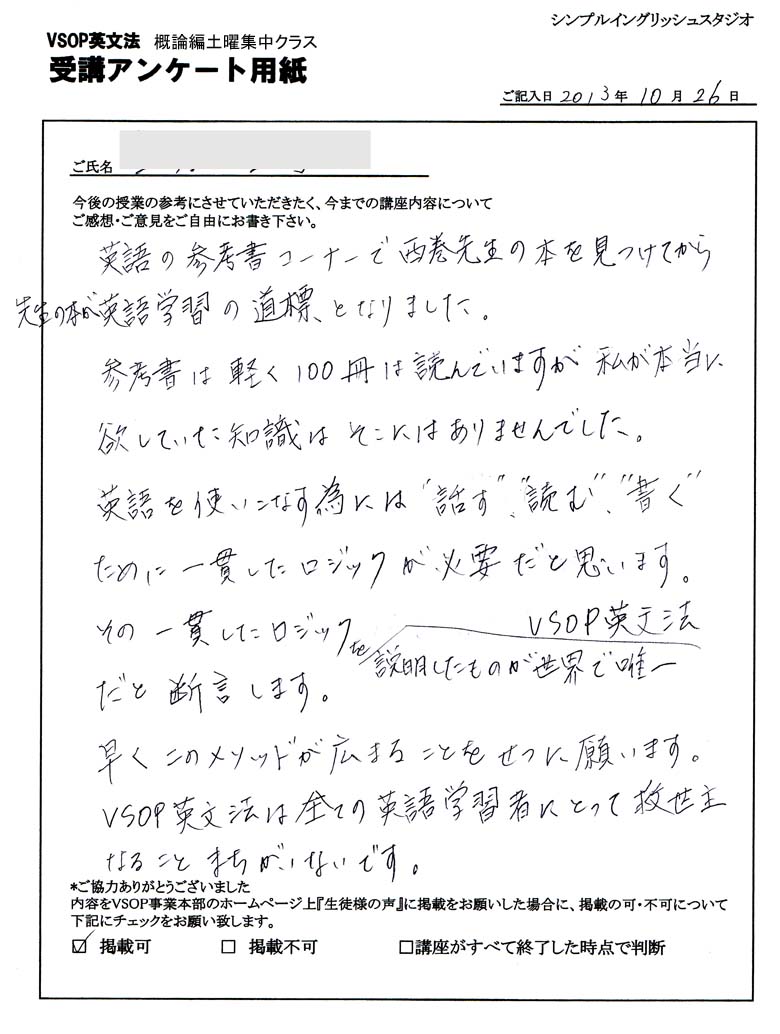 シンプルイングリッシュスタジオ
VSOP英文法 概論編土曜集中クラス
受講アンケート用紙
ご記入日 2013年 10月 26日
ご氏名
今後の授業の参考にさせていただきたく、今までの講座内容について
ご感想・ご意見をご自由にお書き下さい。
英語の参考書コーナーで西巻先生の本を見つけてから
先生の本が英語学習の道標、となりました。
参考書は軽く100冊は読んでいますが私が本当に
欲していた知識はそこにはありませんでした。
英語を使いこなす為には“話す”、“読む”、“書く”
ために一貫したロジックが必要だと思います。
その一貫したロジックを説明したものが世界で唯一 VSOP英文法
だと断言します。
早くこのメソッドが広まることをせつに願います。
VSOP英文法は全ての英語学習者にとって救世主
なることまちがいないです。
*ご協力ありがとうございました
内容をVSOP事業本部のホームページ上『生徒様の声』に掲載をお願いした場合に、掲載の可・不可について
下記にチェックをお願い致します。
☑ 掲載可 □ 掲載不可 □講座がすべて終了した時点で判断